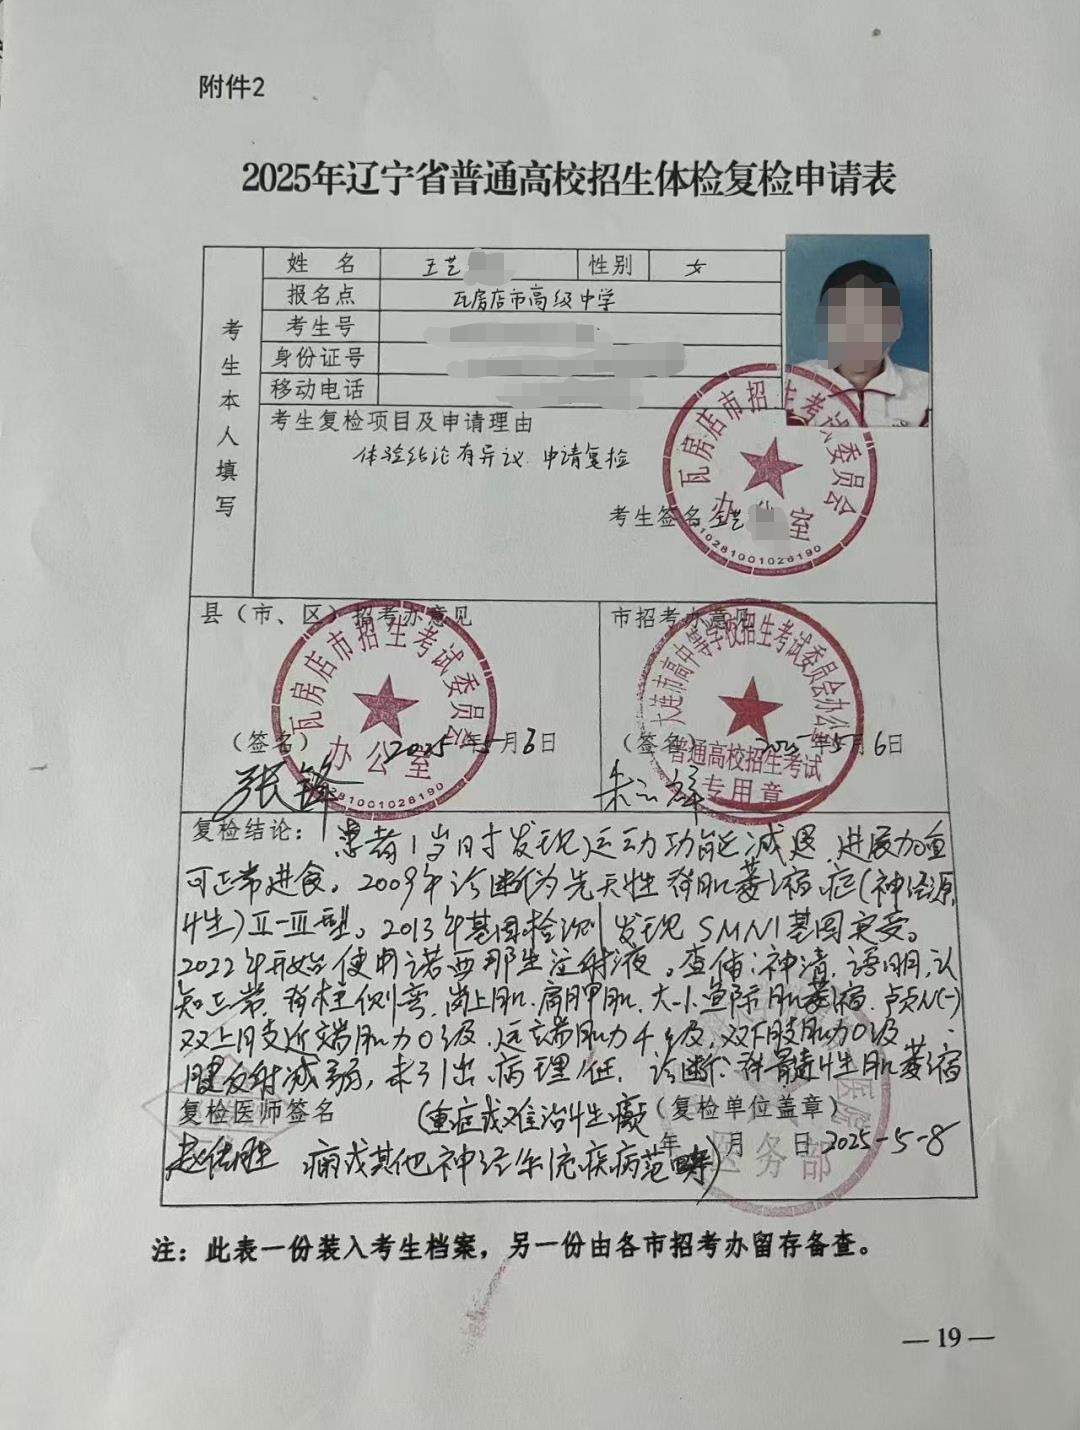 附件2
2025年辽宁省普通高校招生体检复检申请表
考生本人填写
姓 名 王艺 性别 女
报名点 瓦房店市高级中学
考生号
身份证号
移动电话
考生复检项目及申请理由
体验结论有异议 申请复检
考生签名 王艺
瓦房店市招生考试委员会
办公室
210281001026190
县（市、区）招考办意见
市招考办意见
瓦房店市招生考试委员会
办公室
大连市高中等学校招生考试委员会办公室
普通高校招生考试
专用章
（签名） 2025年5月6日
（签名） 2025年5月6日
张锋
朱
复检结论： 患者1岁时发现运动功能减退，进展加重
可正常进食。2009年诊断为先天性脊肌萎缩症(神经源
性)Ⅱ-Ⅲ型。2013年基因检测发现SMN1基因突变。
2022年开始使用诺西那生注射液。查体：神清，语明，认
知正常，脊柱侧弯，岗上肌、肩胛肌、大小鱼际肌萎缩，颅N(-)
双上肢近端肌力0级，远端肌力4级，双下肢肌力0级，
腱反射减弱，未引出病理征。诊断：脊髓性肌萎缩
复检医师签名 (重症或难治性癫 （复检单位盖章）
痫或其他神经系统疾病范畴) 年 月 日 2025-5-8
医务部
注：此表一份装入考生档案，另一份由各市招考办留存备查。
— 19 —